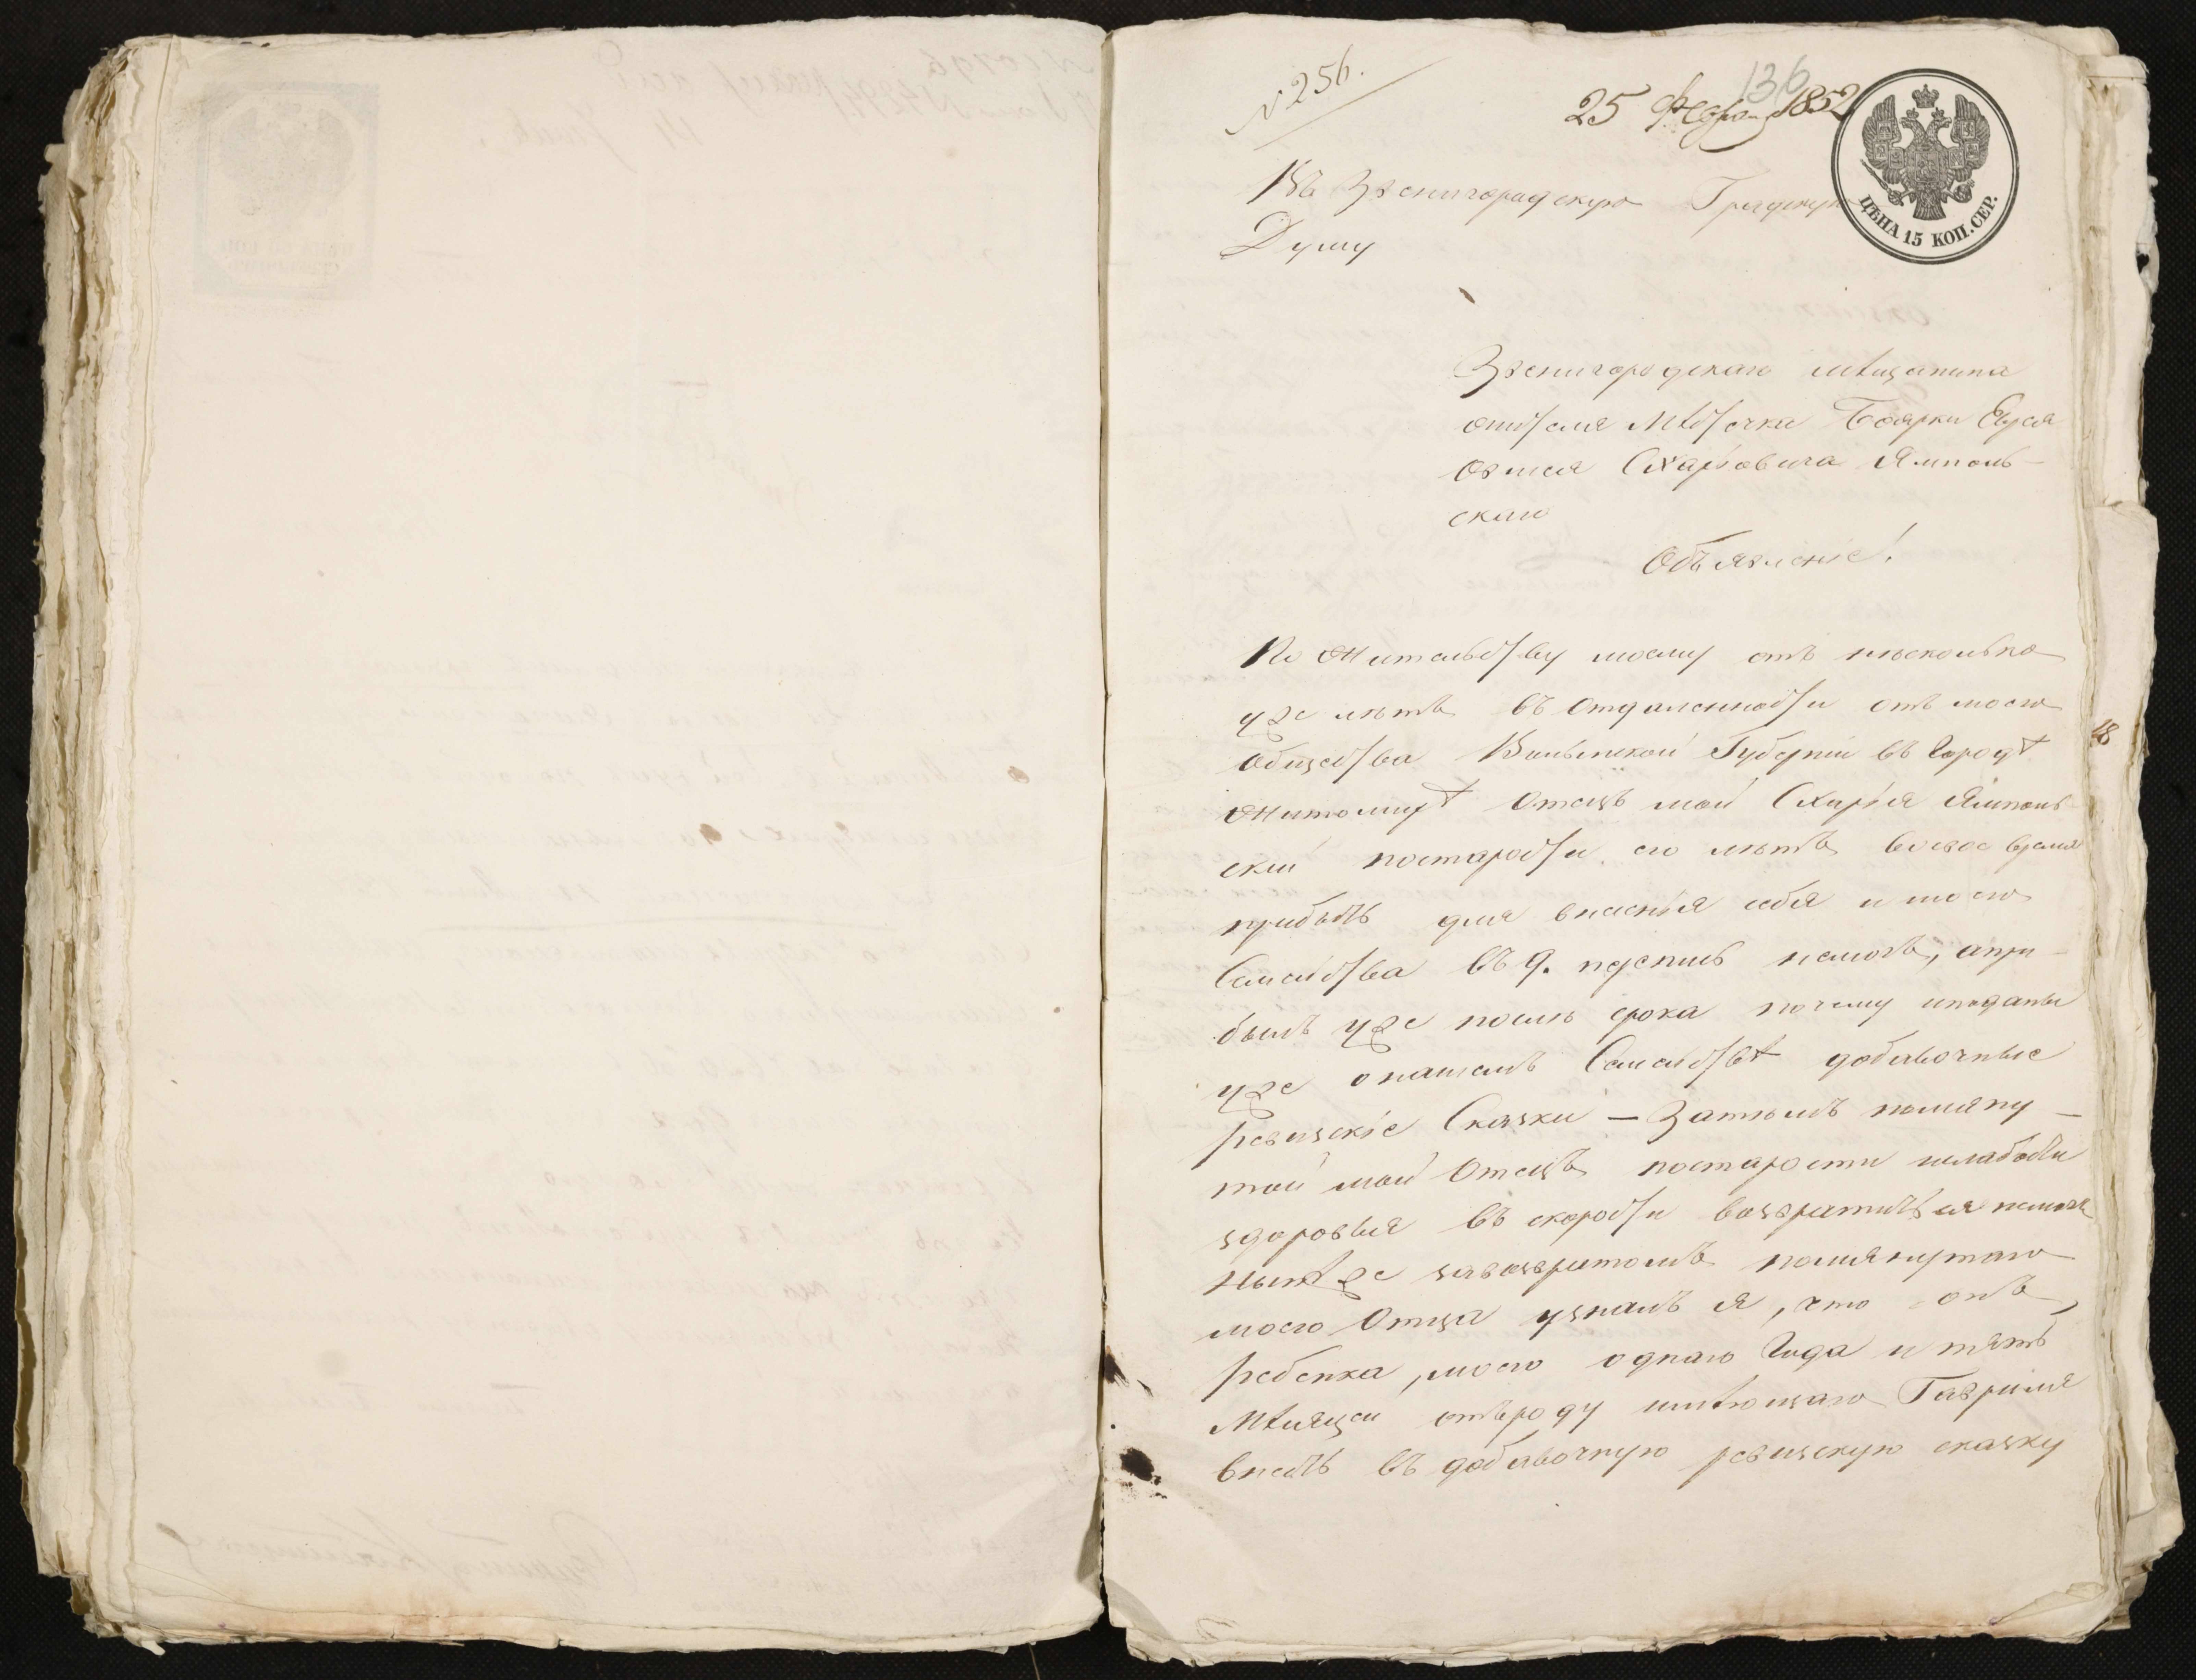 N 256.
136
25 Февр. 1852
ЦѢНА 15 КОП. СЕР.
Въ Звенигородскую Градскую
Думу
Звенигородскаго мѣщанина
жителя Мѣстечка Боярки
Схарiовича Ямполь-
скаго
Объявленiе!
По жительству моему отъ нѣсколько
уже лѣтъ въ отдаленности отъ моего
общества Волынской Губернiи въ городѣ
Житомирѣ Отецъ мой Схарiя Ямполь
скiй постарости его лѣтъ восвое время
прибыть для внесенiя себя и моего
Семейства въ 9. перепись немогъ, а при-
былъ уже послѣ срока почему иподаны
уже онашемъ Семействѣ добавочныя
ревизскiе Сказки — Затѣмъ помяну-
той мой Отецъ постарости ислабости
здоровья въ скорости возвратиться немогъ
Нынѣ же завозвратомъ помянутаго
моего Отца узналъ я, что онъ,
ребенка, моего одного года и пять
Мѣсяцей отъроду имѣющаго Гаврила
внесть въ добавочную ревизскую сказку
18